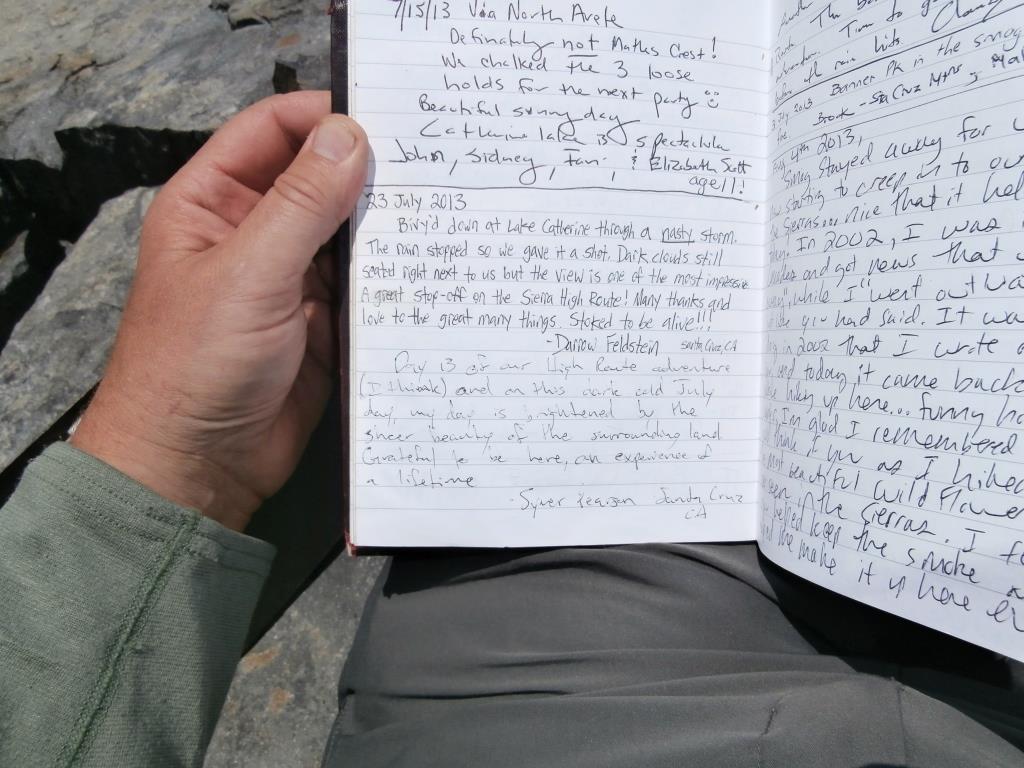 7/15/13 Via North Arete
Definately not Mathes Crest!
We chalked the 3 loose
holds for the next party
Beautiful sunny day
Catherine lake is spectacular
John, Sidney, & Elizabeth Scott
age 11!
23 July 2013
Bivy'd down at Lake Catherine through a nasty storm.
The rain stopped so we gave it a shot. Dark clouds still
seated right next to us but the view is one of the most impressive
A great stop-off on the Sierra High Route! Many thanks and
love to the great many things. Stoked to be alive!!!
-Darrow Feldstein Santa Cruz, CA
Day 13 of our High Route adventure
(I think) and on this dark cold July
day, my day is brightened by the
sheer beauty of the surrounding land
Grateful to be here, an experience of
a lifetime
Santa Cruz
CA
The
Time to
with rain
July 2013 Banner Pk in the smog
Brook - Sta Cruz Mtns
4th 2013,
Smog stayed away for
starting to creep in to
Sierras... nice that it
In 2002, I was
and got news that
while I went out
you had said. It
in 2002 that I write
and today it came back
hiking up here... funny
I'm glad I remembered
think of you as I hiked
most beautiful wild flowers
seen in the Sierras. I
helped keep the smoke
me make it up here